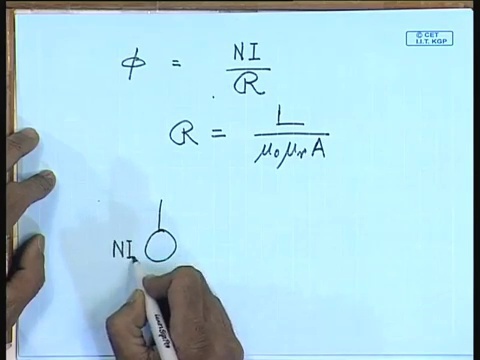 © CET
I.I.T. KGP
φ = NI / ℛ
ℛ = L / μ₀ μᵣ A
NI